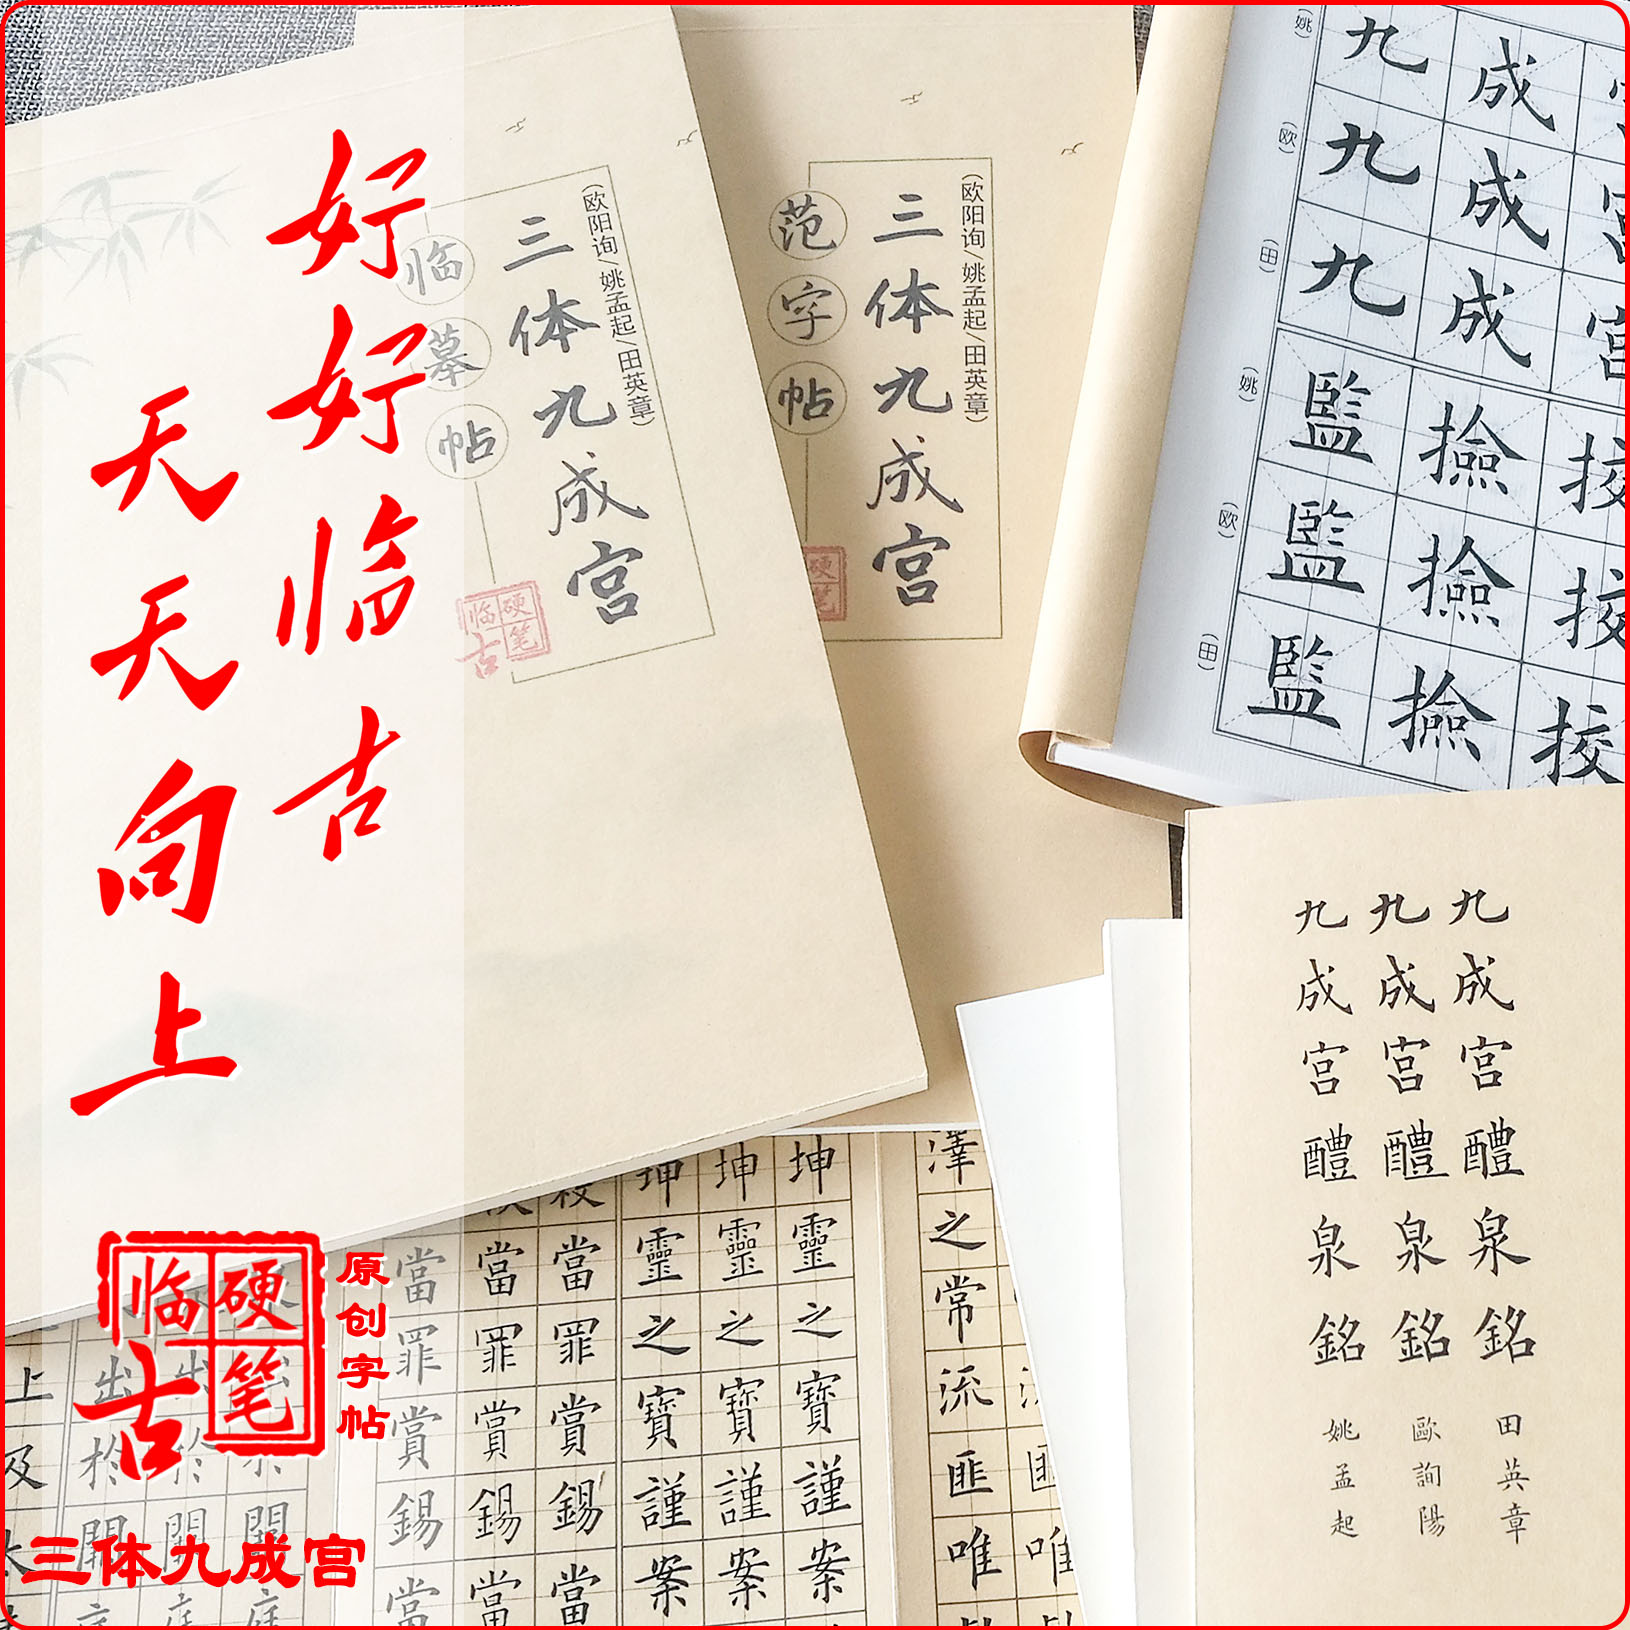 好好临古
天天向上
硬笔
临古
原创字帖
三体九成宫
(欧阳询/姚孟起/田英章)
三体九成宫
临摹帖
硬笔
临古
(欧阳询/姚孟起/田英章)
三体九成宫
范字帖
硬笔
(姚)
九成
(欧)
九成宫
(田)
九成宫
(姚)
監撿挍
(欧)
監撿挍
(田)
監撿挍
九成宮醴泉銘
田英章
九成宮醴泉銘
歐詢陽
九成宮醴泉銘
姚孟起
澤之常流匪唯
坤靈之寶謹案
坤靈之寶謹案
坤靈之寶謹案
當罪賞錫當
當罪賞錫當
當罪賞錫當
出於閞
上及